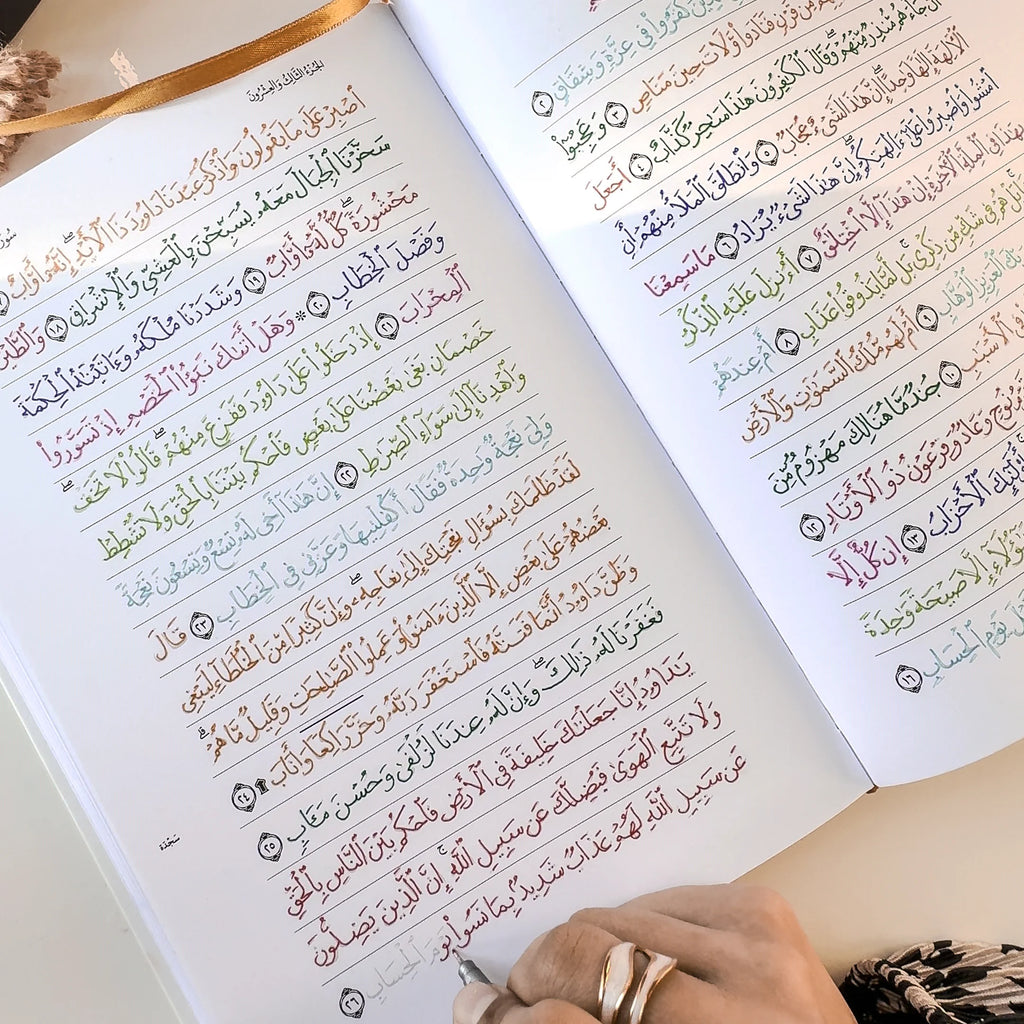 كَفَرُوا۟ فِى عِزَّةٍ وَشِقَاقٍ ٢
مِّن قَرْنٍ فَنَادَوا۟ وَّلَاتَ حِينَ مَنَاصٍ ٣ وَعَجِبُوٓا۟
أَن جَآءَهُم مُّنذِرٌ مِّنْهُمْ ۖ وَقَالَ ٱلْكَٰفِرُونَ هَٰذَا سَٰحِرٌ كَذَّابٌ ٤ أَجَعَلَ
ٱلْءَالِهَةَ إِلَٰهًا وَٰحِدًا ۖ إِنَّ هَٰذَا لَشَىْءٌ عُجَابٌ ٥ وَٱنطَلَقَ ٱلْمَلَأُ مِنْهُمْ أَنِ
ٱمْشُوا۟ وَٱصْبِرُوا۟ عَلَىٰٓ ءَالِهَتِكُمْ ۖ إِنَّ هَٰذَا لَشَىْءٌ يُرَادُ ٦ مَا سَمِعْنَا
بِهَٰذَا فِى ٱلْمِلَّةِ ٱلْءَاخِرَةِ إِنْ هَٰذَآ إِلَّا ٱخْتِلَٰقٌ ٧ أَءُنزِلَ عَلَيْهِ ٱلذِّكْرُ
بَلْ هُمْ فِى شَكٍّ مِّن ذِكْرِى ۖ بَل لَّمَّا يَذُوقُوا۟ عَذَابِ ٨ أَمْ عِندَهُمْ
رَبِّكَ ٱلْعَزِيزِ ٱلْوَهَّابِ ٩ أَمْ لَهُم مُّلْكُ ٱلسَّمَٰوَٰتِ وَٱلْأَرْضِ
فِى ٱلْأَسْبَٰبِ ١٠ جُندٌ مَّا هُنَالِكَ مَهْزُومٌ مِّنَ
نُوحٍ وَعَادٌ وَفِرْعَوْنُ ذُو ٱلْأَوْتَادِ ١٢
أُو۟لَٰٓئِكَ ٱلْأَحْزَابُ ١٣ إِن كُلٌّ إِلَّا
هَٰٓؤُلَآءِ إِلَّا صَيْحَةً وَٰحِدَةً
قَبْلَ يَوْمِ ٱلْحِسَابِ ١٦
الجزء الثالث والعشرون
ٱصْبِرْ عَلَىٰ مَا يَقُولُونَ وَٱذْكُرْ عَبْدَنَا دَاوُۥدَ ذَا ٱلْأَيْدِ ۖ إِنَّهُۥٓ أَوَّابٌ
سَخَّرْنَا ٱلْجِبَالَ مَعَهُۥ يُسَبِّحْنَ بِٱلْعَشِىِّ وَٱلْإِشْرَاقِ ١٨ وَٱلطَّيْرَ
مَحْشُورَةً ۖ كُلٌّ لَّهُۥٓ أَوَّابٌ ١٩ وَشَدَدْنَا مُلْكَهُۥ وَءَاتَيْنَٰهُ ٱلْحِكْمَةَ
وَفَصْلَ ٱلْخِطَابِ ٢٠ * وَهَلْ أَتَىٰكَ نَبَؤُا۟ ٱلْخَصْمِ إِذْ تَسَوَّرُوا۟
ٱلْمِحْرَابَ ٢١ إِذْ دَخَلُوا۟ عَلَىٰ دَاوُۥدَ فَفَزِعَ مِنْهُمْ ۖ قَالُوا۟ لَا تَخَفْ ۖ
خَصْمَانِ بَغَىٰ بَعْضُنَا عَلَىٰ بَعْضٍ فَٱحْكُم بَيْنَنَا بِٱلْحَقِّ وَلَا تُشْطِطْ
وَٱهْدِنَآ إِلَىٰ سَوَآءِ ٱلصِّرَٰطِ ٢٢ إِنَّ هَٰذَآ أَخِى لَهُۥ تِسْعٌ وَتِسْعُونَ نَعْجَةً
وَلِىَ نَعْجَةٌ وَٰحِدَةٌ فَقَالَ أَكْفِلْنِيهَا وَعَزَّنِى فِى ٱلْخِطَابِ ٢٣ قَالَ
لَقَدْ ظَلَمَكَ بِسُؤَالِ نَعْجَتِكَ إِلَىٰ نِعَاجِهِۦ ۖ وَإِنَّ كَثِيرًا مِّنَ ٱلْخُلَطَآءِ لَيَبْغِى
بَعْضُهُمْ عَلَىٰ بَعْضٍ إِلَّا ٱلَّذِينَ ءَامَنُوا۟ وَعَمِلُوا۟ ٱلصَّٰلِحَٰتِ وَقَلِيلٌ مَّا هُمْ ۗ
وَظَنَّ دَاوُۥدُ أَنَّمَا فَتَنَّٰهُ فَٱسْتَغْفَرَ رَبَّهُۥ وَخَرَّ رَاكِعًا وَأَنَابَ ۩ ٢٤
فَغَفَرْنَا لَهُۥ ذَٰلِكَ ۖ وَإِنَّ لَهُۥ عِندَنَا لَزُلْفَىٰ وَحُسْنَ مَـَٔابٍ ٢٥
سَجْدَة
يَٰدَاوُۥدُ إِنَّا جَعَلْنَٰكَ خَلِيفَةً فِى ٱلْأَرْضِ فَٱحْكُم بَيْنَ ٱلنَّاسِ بِٱلْحَقِّ
وَلَا تَتَّبِعِ ٱلْهَوَىٰ فَيُضِلَّكَ عَن سَبِيلِ ٱللَّهِ ۚ إِنَّ ٱلَّذِينَ يَضِلُّونَ
عَن سَبِيلِ ٱللَّهِ لَهُمْ عَذَابٌ شَدِيدٌۢ بِمَا نَسُوا۟ يَوْمَ ٱلْحِسَابِ ٢٦